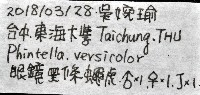 2018/03/28 吳婉瑜
台中東海大學 Taichung.THU
Phintella. versicolor
眼鏡黑條蠅虎 ♂×1, ♀×1, J×1